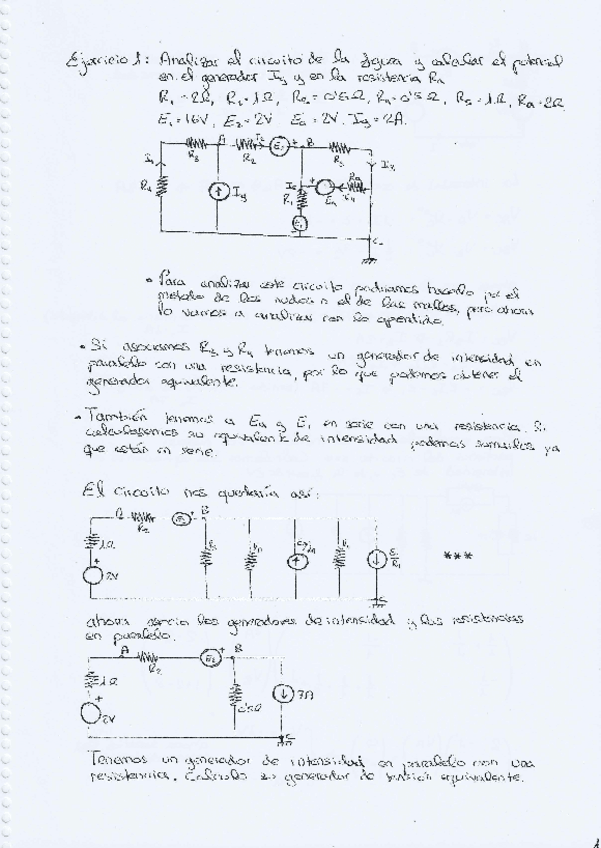 Ejercicio 1: Analizar el circuito de la figura y calcular el potencial
en el generador Ig y en la resistencia Ra
R1 = 2Ω, R2 = 1Ω, R3 = 0'5Ω, R4 = 0'5Ω, R5 = 1Ω, Ra = 2Ω
E1 = 16V, E2 = 2V Ea = 2V. Ig = 2A.
A R3 R2 I2 E2 + B R5
R4 Ig R1 Ea Ra E1
• Para analizar este circuito podríamos hacerlo por el
método de los nudos o el de las mallas, pero ahora
lo vamos a analizar con lo aprendido.
• Si asociamos R3 y R4 tenemos un generador de intensidad en
paralelo con una resistencia, por lo que podemos obtener el
generador equivalente.
• También tenemos a Ea y E1 en serie con una resistencia. Si
calculásemos su equivalente de intensidad podemos sumarlos ya
que están en serie.
El circuito nos quedaría así:
A R2 E2 + B
1Ω + 2V
E1/R1
***
ahora asocio los generadores de intensidad y las resistencias
en paralelo.
A R2 E2 + B
1Ω + 2V 7A
C
Tenemos un generador de intensidad en paralelo con una
resistencia. Calculo su generador de tensión equivalente.
1